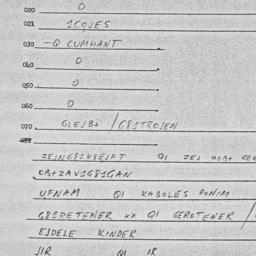 020 0
021 1CQJES
030 -Q CUMHANT
040 0
050 0
060 0
070 GLEJB+ / G81TROJEN
ZEJNG81K8EJFT QI ZEJ HOB+ GEK
OB+ZAV1G81GAN
UFNAM QI KABOLES PONIM
G81RETENER XX QI GEROTENER /
EJDELE KINDER
JIR QI IR